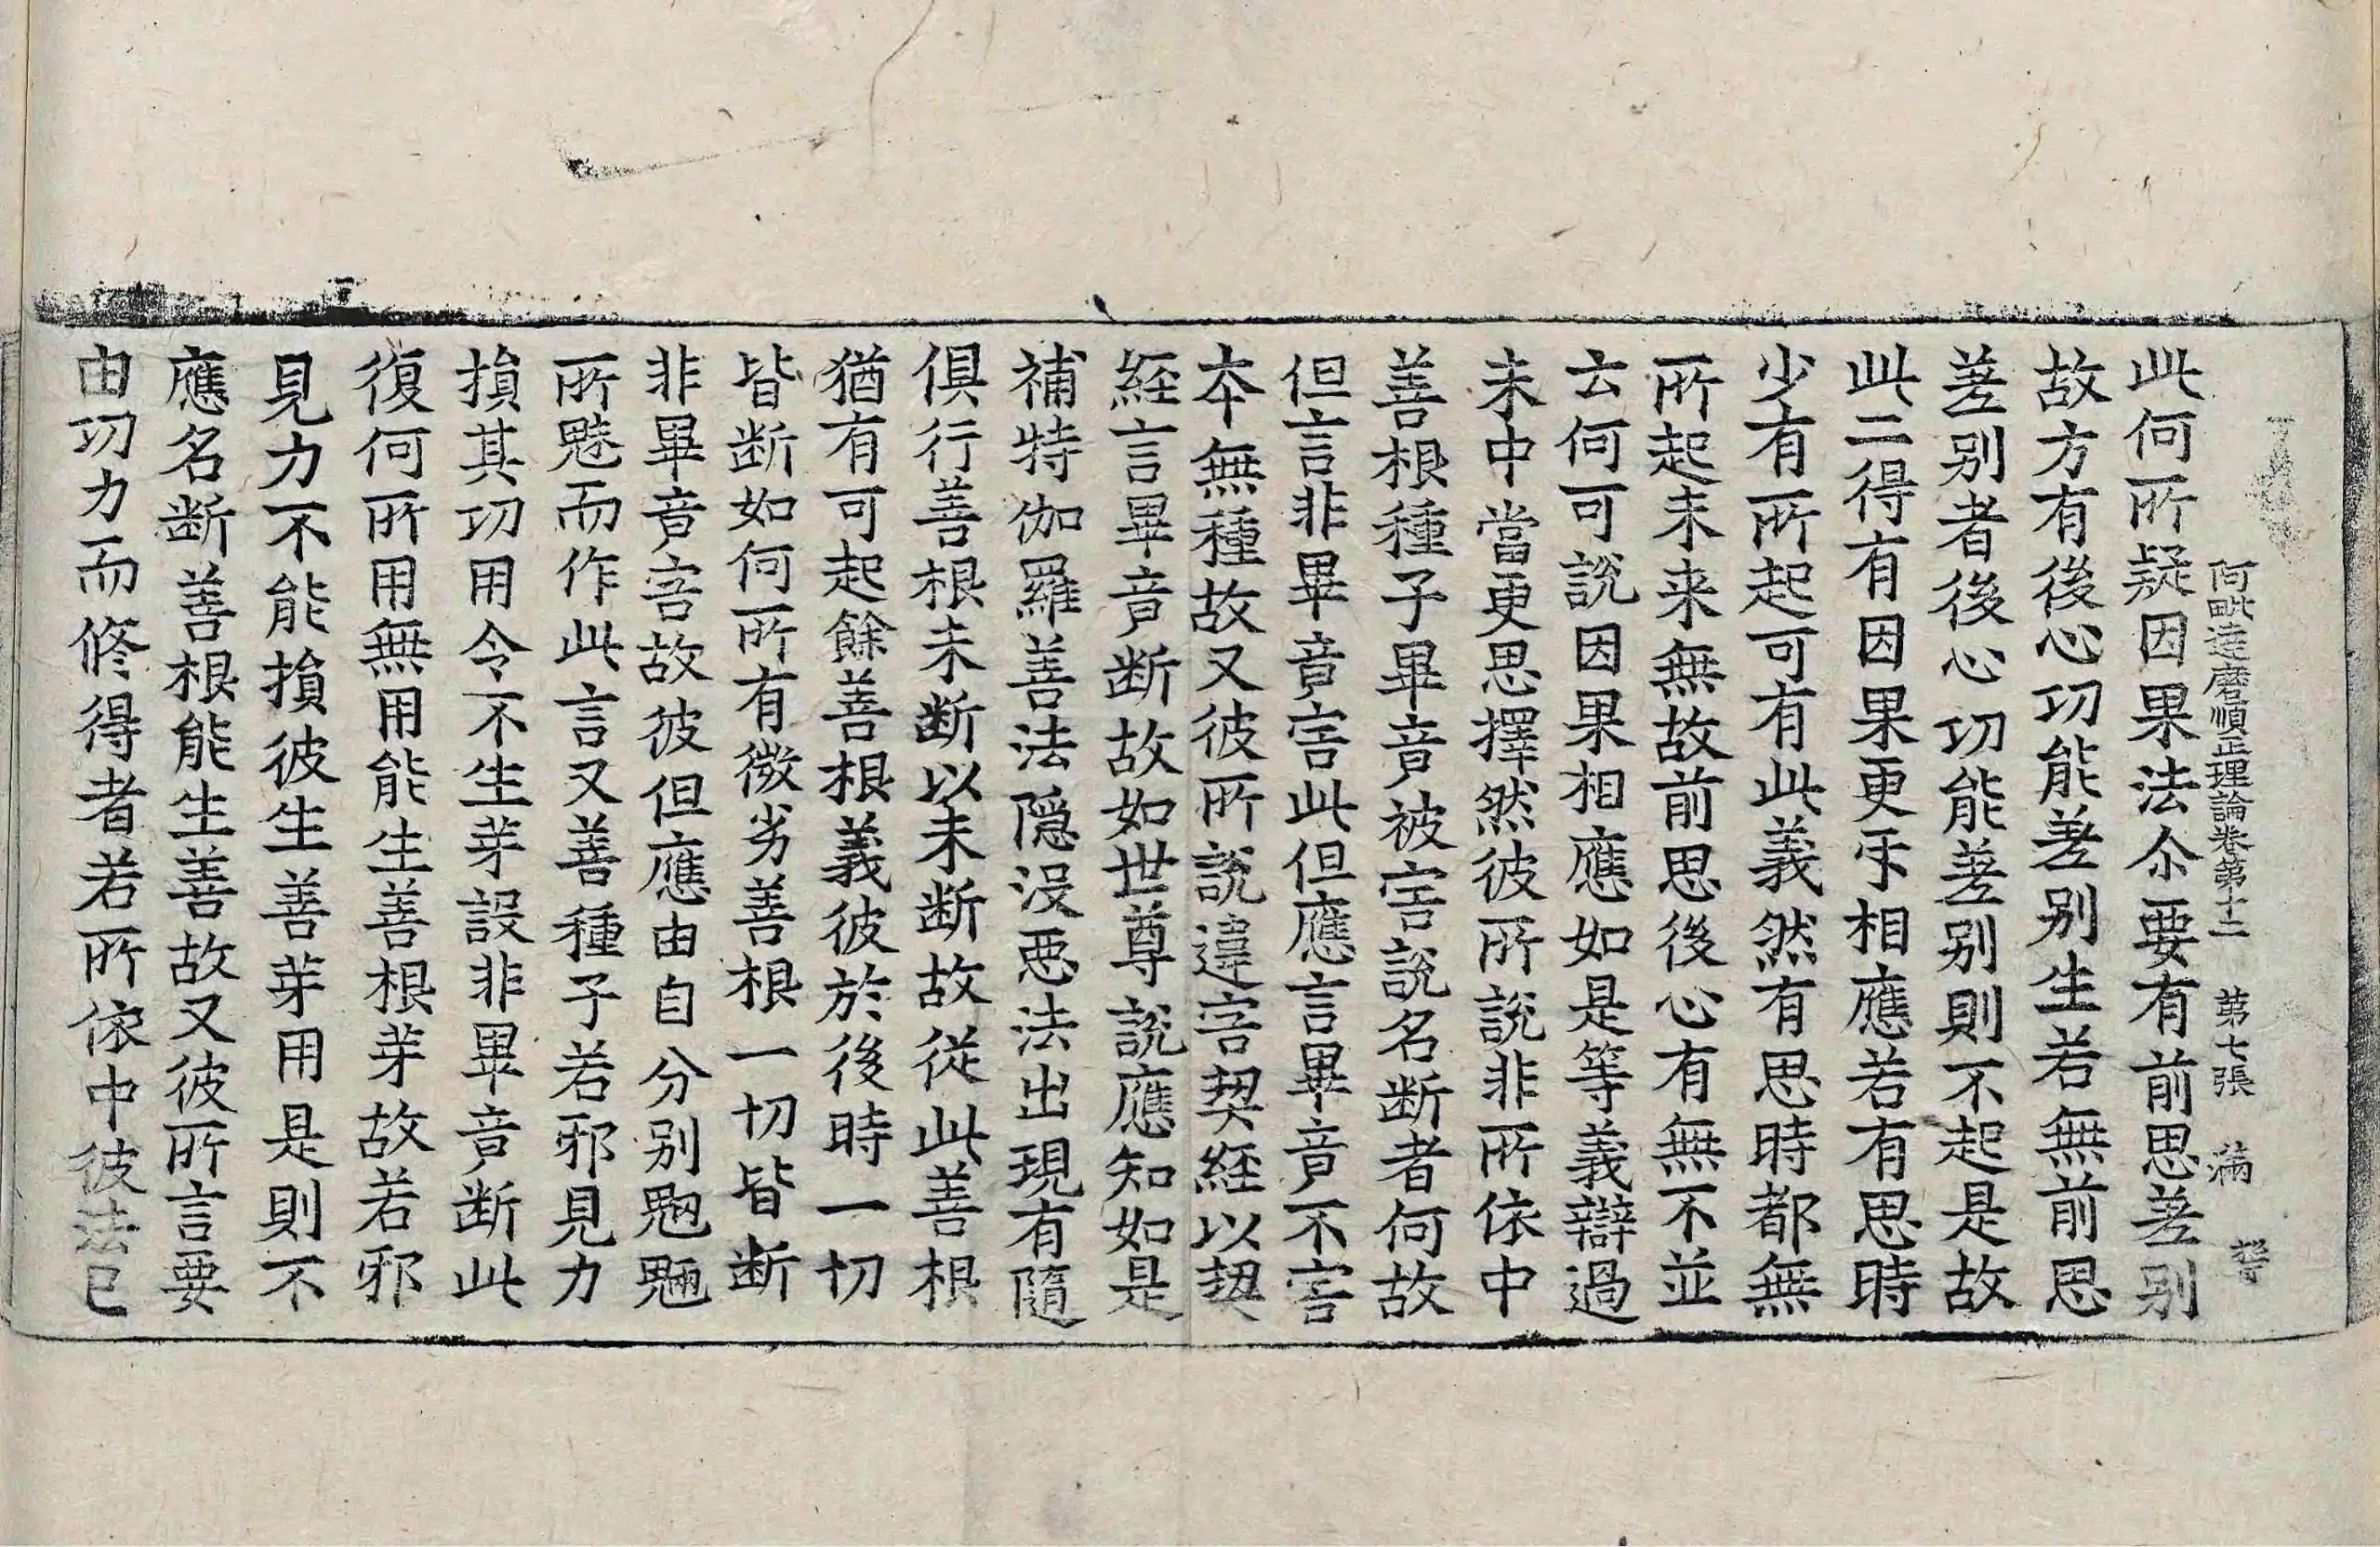 阿毗達磨順正理論卷第十二 第七張 滿
此何所疑因果法尒要有前思差别
故方有後心功能差别生若無前思
差别者後心功能差别則不起是故
此二得有因果更㸦相應若有思時
少有所起可有此義然有思時都無
所起未来無故前思後心有無不並
云何可說因果相應如是等義辯過
未中當更思擇然彼所說非所依中
善根種子畢竟被害說名断者何故
但言非畢竟害此但應言畢竟不害
本無種故又彼所說違害契經以契
經言畢竟断故如世尊說應知如是
補特伽羅善法隠没悪法出現有隨
俱行善根未断以未断故從此善根
猶有可起餘善根義彼於後時一切
皆断如何所有微劣善根一切皆断
非畢竟害故彼但應由自分别魍魎
所魅而作此言又善種子若邪見力
損其功用令不生芽設非畢竟断此
復何所用無用能生善根芽故若邪
見力不能損彼生善芽用是則不
應名断善根能生善故又彼所言要
由功力而修得者若所依中彼法已